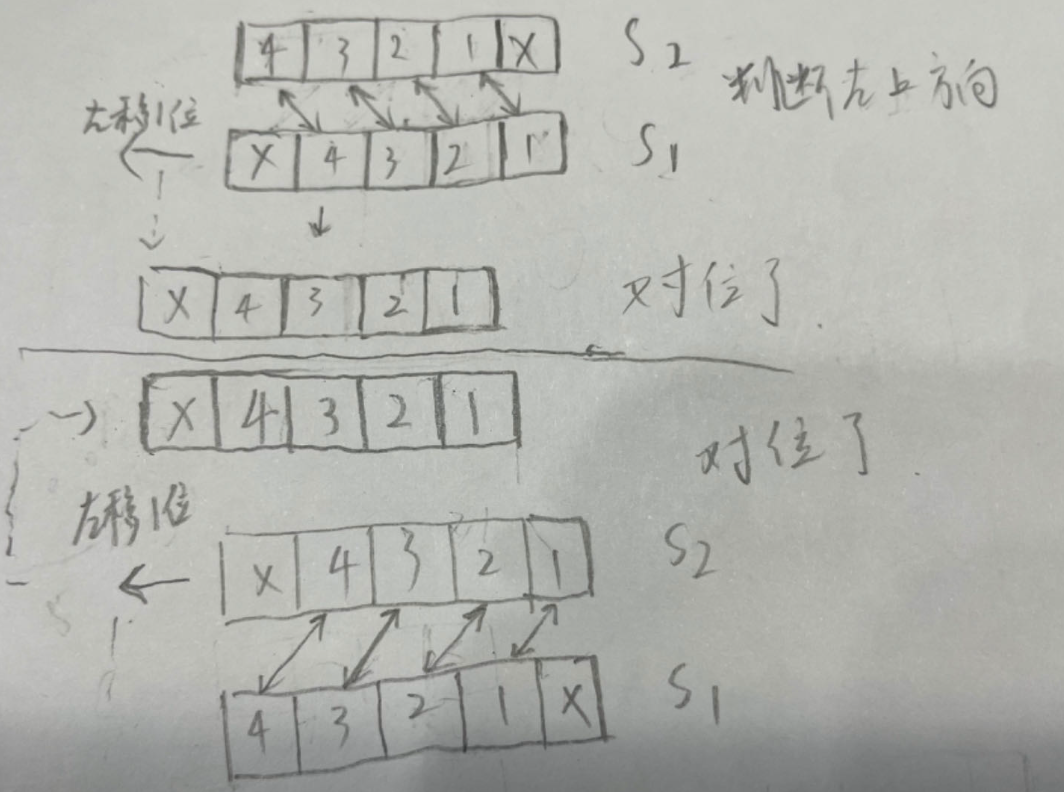 4 3 2 1 X S2
判断左上方向
左移1位
X 4 3 2 1 S1
X 4 3 2 1 对位了.
X 4 3 2 1 对位了.
左移1位
X 4 3 2 1 S2
4 3 2 1 X S1